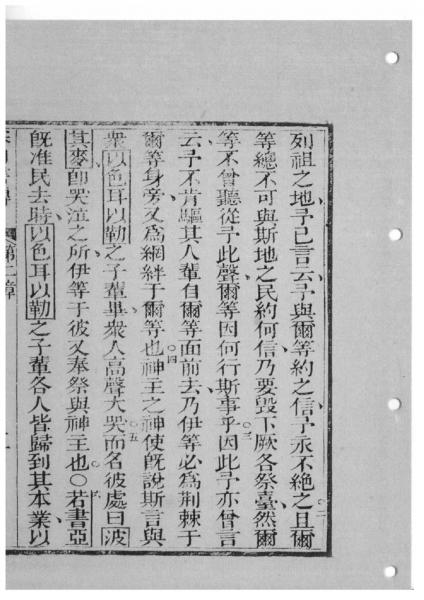 列祖之地予已言云予與爾等約之信予永不絕之二且爾
等總不可與斯地之民約何信乃要毀下厥各祭臺然爾
等不曾聽從予此聲爾等因何行斯事乎三因此予亦曾言
云予不肯驅其人輩自爾等面前去乃伊等必為荊棘于
爾等身旁又為網絆于爾等也四神主之神使既說斯言與
衆以色耳以勒之子輩畢衆人高聲大哭五而名彼處曰波
其麥即哭泣之所伊等于彼又奉祭與神主也〇六若書亞
既准民去時以色耳以勒之子輩各人皆歸到其本業以
第二章